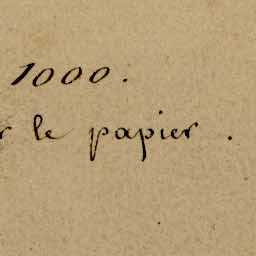 1000.
r le papier.